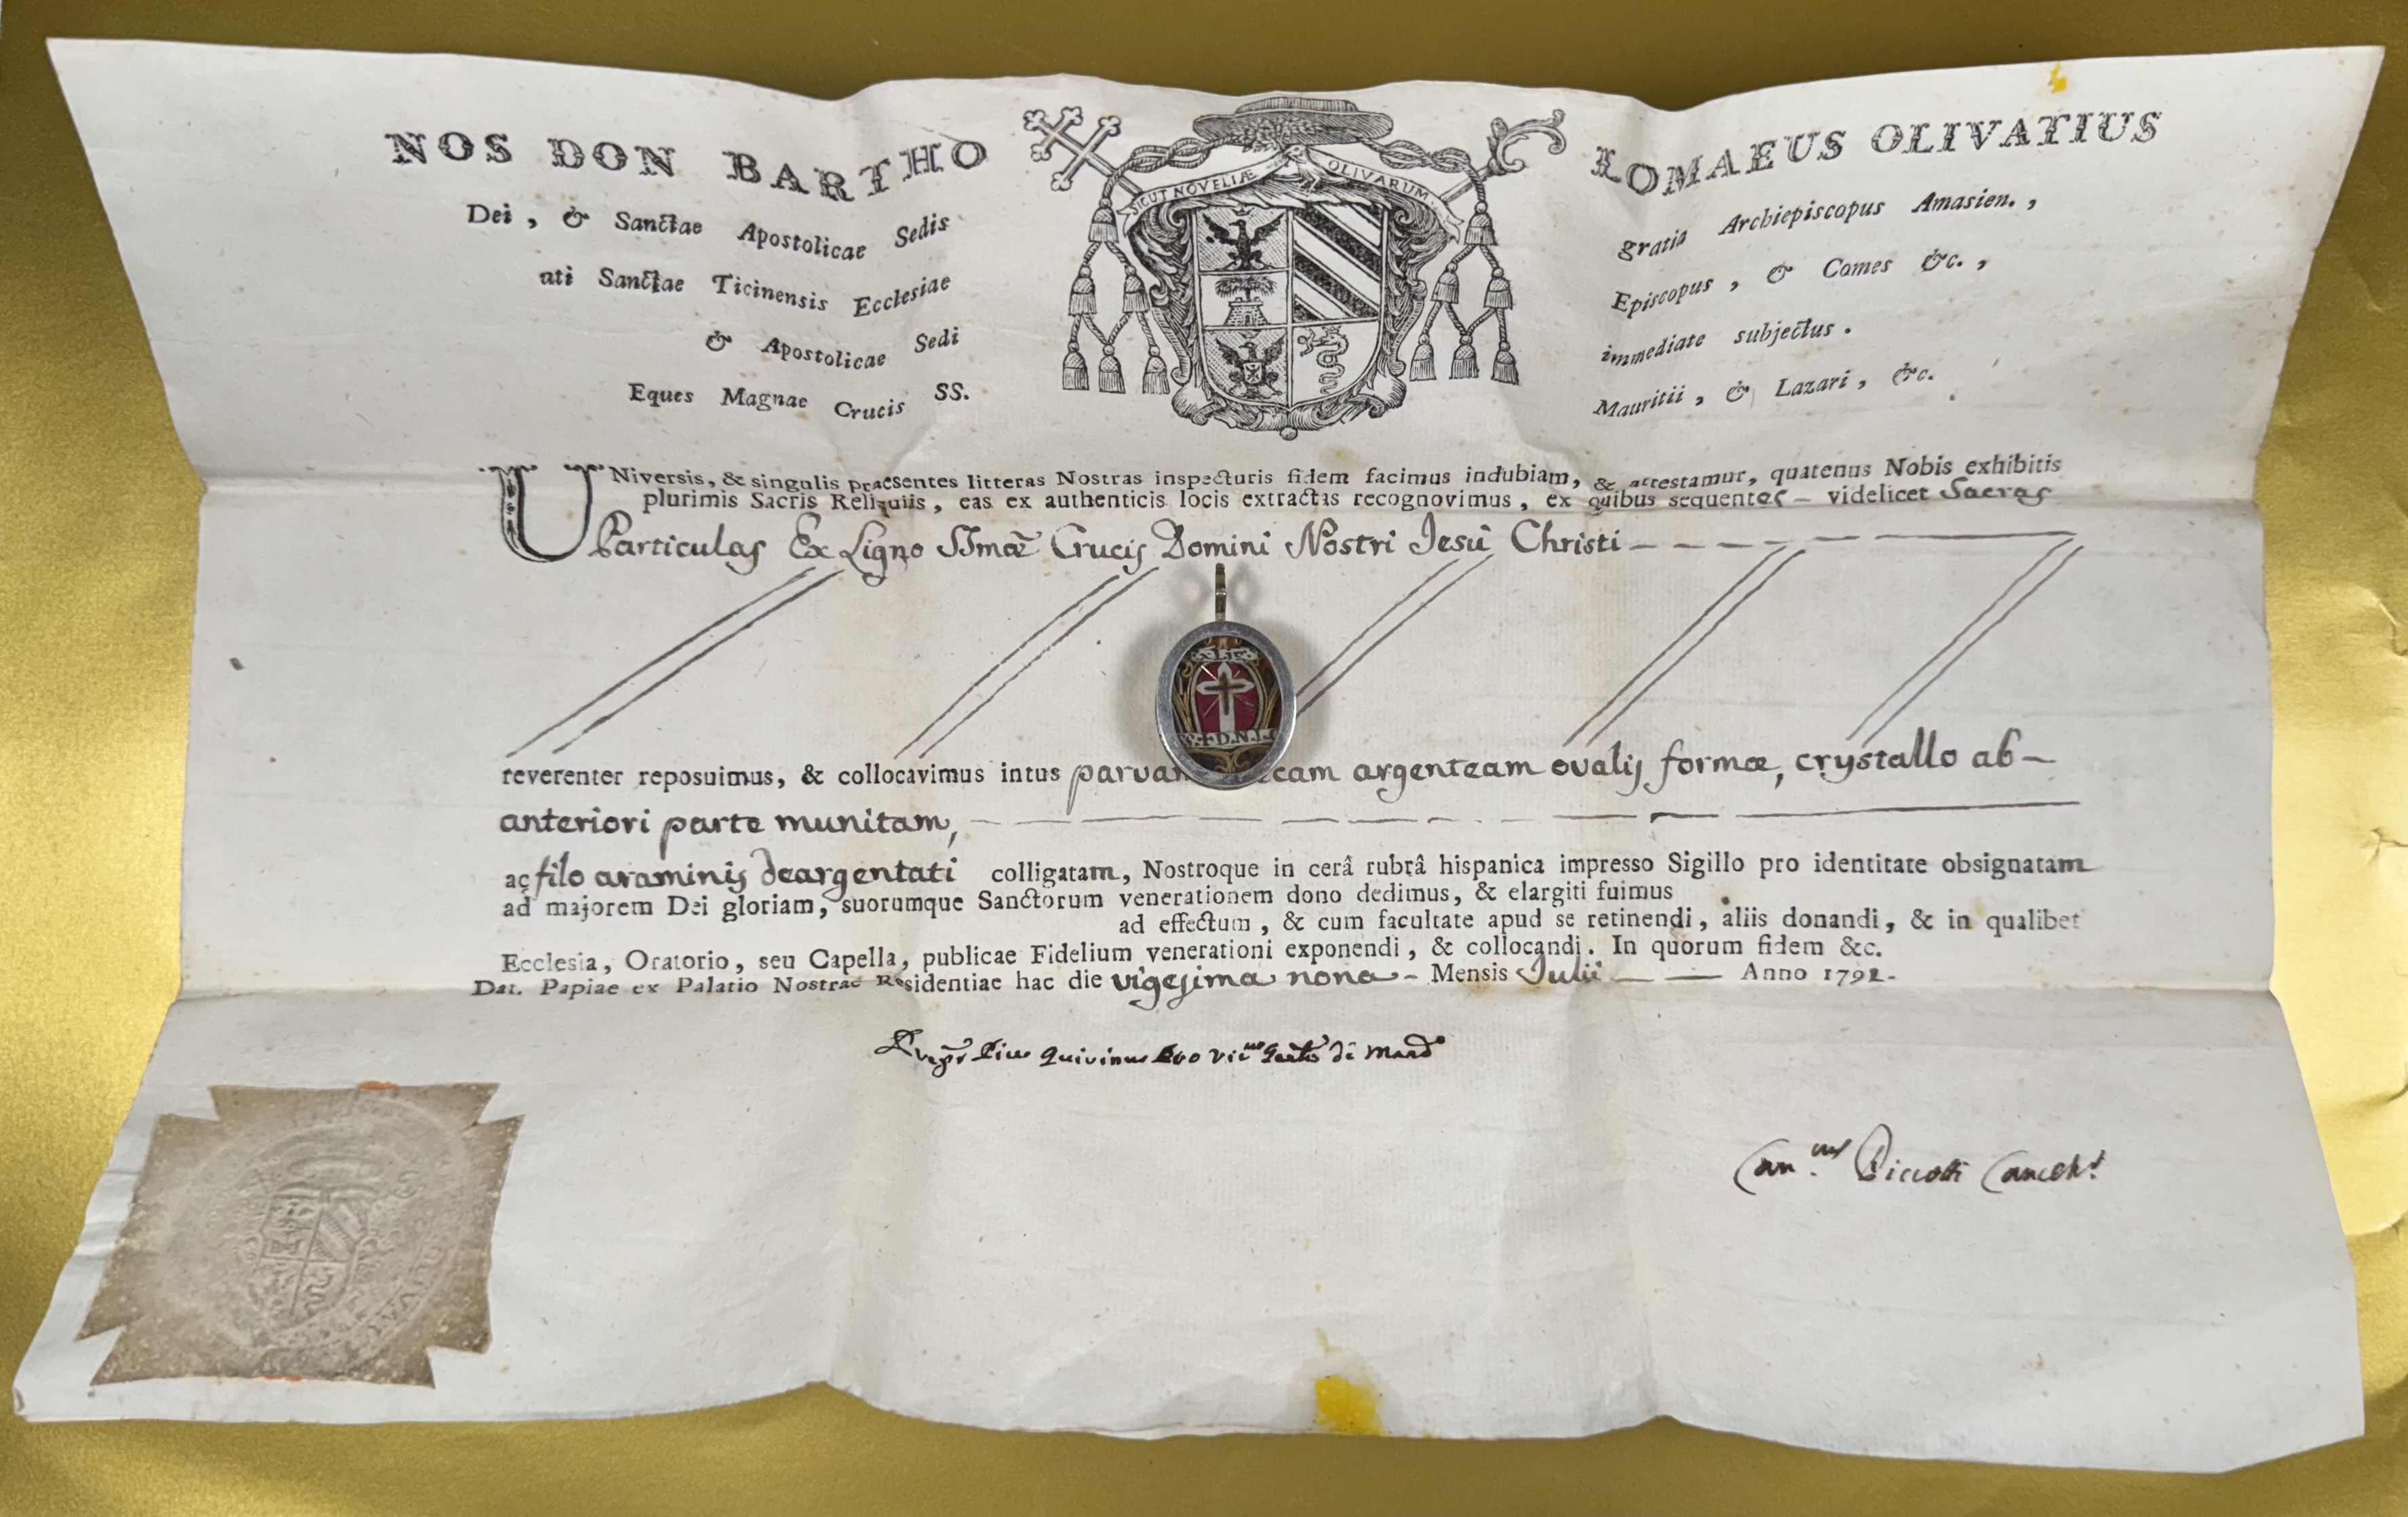 NOS DON BARTHO LOMAEUS OLIVATIUS
SICUT NOVELLÆ OLIVARUM
Dei, & Sanctae Apostolicae Sedis gratia Archiepiscopus Amasien.,
ati Sanctae Ticinensis Ecclesiae Episcopus, & Comes &c.,
& Apostolicae Sedi immediate subjectus.
Eques Magnae Crucis SS. Mauritii, & Lazari, &c.
UNiversis, & singulis praesentes litteras Nostras inspecturis fidem facimus indubiam, & attestamur, quatenus Nobis exhibitis
plurimis Sacris Reliquiis, eas ex authenticis locis extractas recognovimus, ex quibus sequentes – videlicet Sacras
Particulas Ex Ligno SSmæ Crucis Domini Nostri Jesu Christi
Ex Lig.
D.N.J.
reverenter reposuimus, & collocavimus intus argenteam ovalis formæ, crystallo ab–
anteriori parte munitam,
ac filo araminis deargentati colligatam, Nostroque in cerâ rubrâ hispanica impresso Sigillo pro identitate obsignatam
ad majorem Dei gloriam, suorumque Sanctorum venerationem dono dedimus, & elargiti fuimus
ad effectum, & cum facultate apud se retinendi, aliis donandi, & in qualibet
Ecclesia, Oratorio, seu Capella, publicae Fidelium venerationi exponendi, & collocandi. In quorum fidem &c.
Dat. Papiae ex Palatio Nostrae Residentiae hac die vigesima nona – Mensis Julii Anno 1792.
Can.cus Piccotti